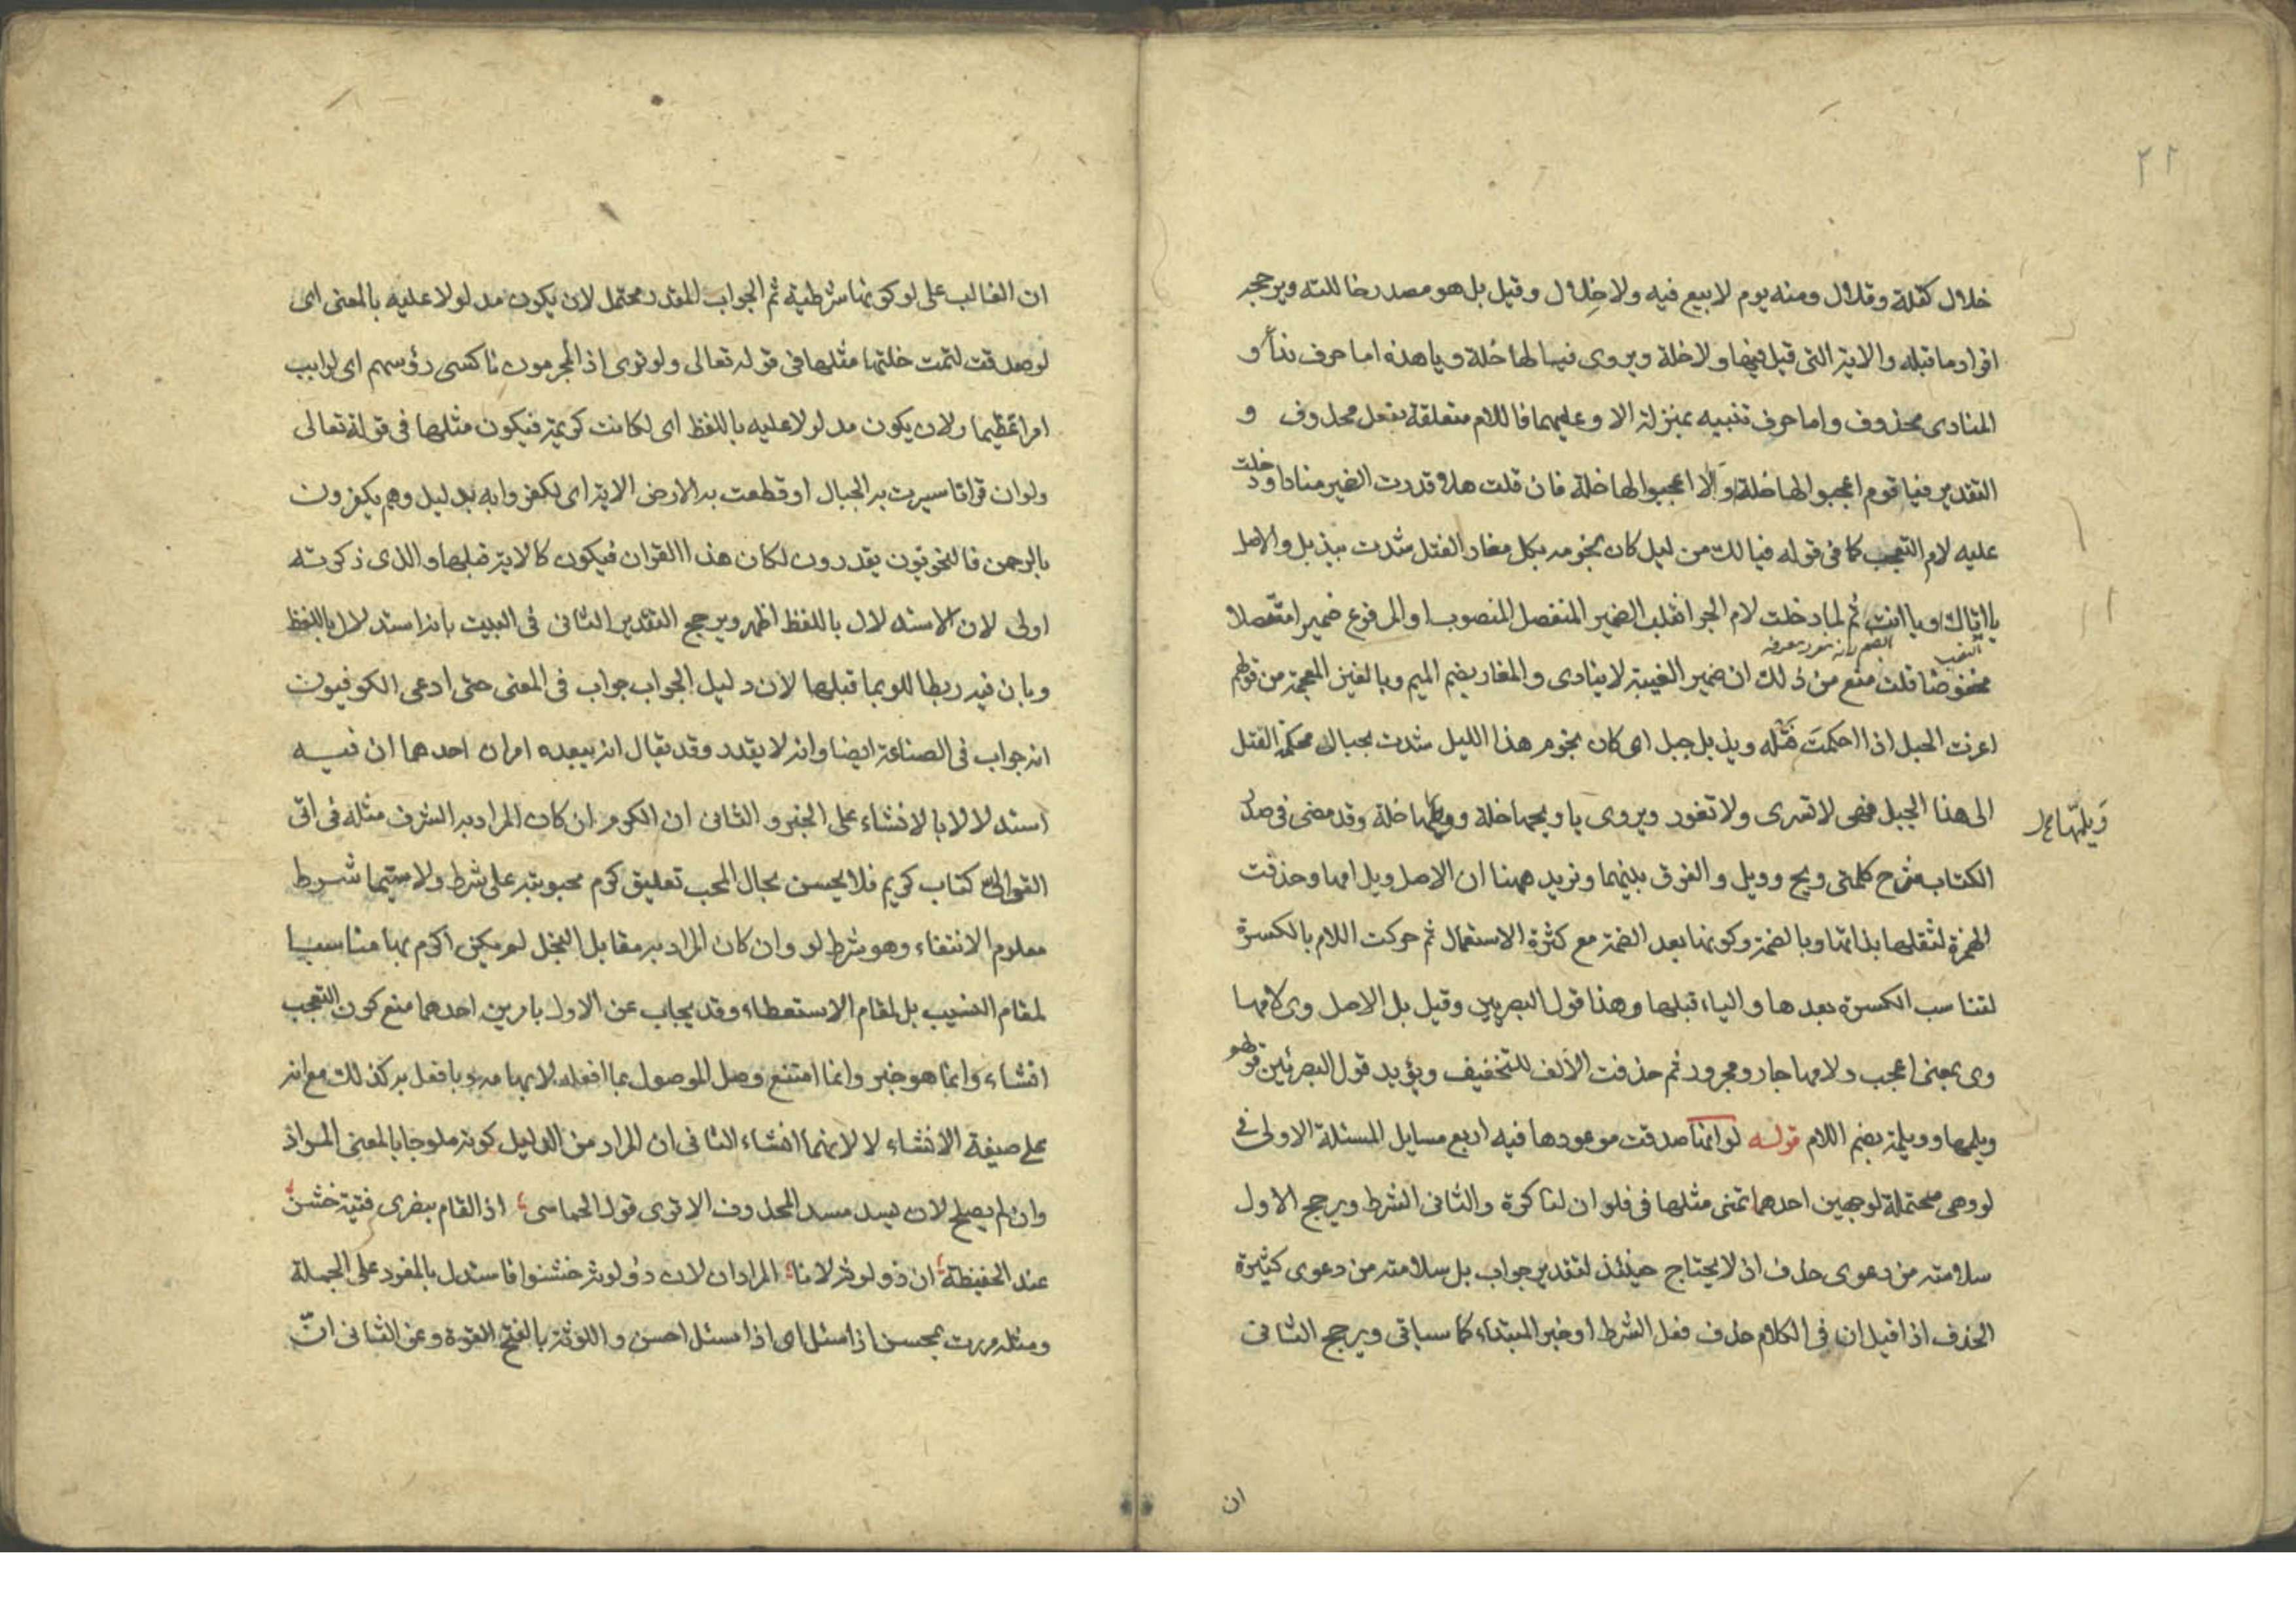 ٢١
خلال كقلة وقلال ومنه يوم لا بيع فيه ولا خِلال وقيل بل هو مصدر خاللته ويرجحه
افراد ما قبله والاية التى قيل فيها ولا خلة ويروى فيا لها خلة ويا هذه اما حرف نداء و
المنادى محذوف واما حرف تنبيه بمنزلة الا وعليهما فاللام متعلقة بفعل محذوف و
التقدير فيا قوم اعجبوا لها خلة او الا اعجبوا لها خلة فان قلت هلا قدرت الضمير منادا ودخلت
عليه لام التعجب كما فى قوله فيا لك من ليل كان نجومه بكل مغار الفتل شدت بيذبل والاصل
يا اياك او يا انت ثم لما دخلت لام الجر انقلب الضمير المنفصل المنصوب او المرفوع ضميرا متصلا
مخفوضا قلت منع من ذلك ان ضمير الغيبة لا ينادى والمغار بضم الميم وبالغين المعجمة من قولهم
اغرت الحبل اذا احكمت فتله ويذبل جبل اى كان نجوم هذا الليل شدت بحبال محكمة الفتل
الى هذا الجبل فهى لا تسرى ولا تغور ويروى يا ويحها خلة وويلمها خلة وقد مضى فى صدر
وَيلُمّها
الكتاب شرح كلمتى ويح وويل والفرق بينهما ونزيد ههنا ان الاصل ويل امها وحذفت
الهمزة لثقلها بذاتها وبالضمة وكونها بعد الضمة مع كثرة الاستعمال ثم حركت اللام بالكسرة
لتناسب الكسرة بعدها والياء قبلها وهذا قول البصريين وقيل بل الاصل وى لامها
وى بمعنى اعجب ولامها جار ومجرور ثم حذفت الألف للتخفيف ويؤيد قول البصريين قولهم
ويلمها وويلمه بضم اللام قوله لو انها صدقت موعودها فيه اربع مسايل المسئلة الاولى فى
لو وهى محتملة لوجهين احدهما تمنى مثلها فى فلو ان لنا كرة والثانى الشرط ويرجح الاول
سلامته من دعوى حذف اذ لا يحتاج حينئذ لتقدير جواب بل سلامته من دعوى كثيرة
الحذف اذا قيل ان فى الكلام حذف فعل الشرط او خبر المبتداء كما سياتى ويرجح الثانى
ان
ان الغالب على لو كونها شرطية ثم الجواب المقدر محتمل لان يكون مدلولا عليه بالمعنى اى
لو صدقت لتمت خلتها مثلها فى قوله تعالى ولو ترى اذ المجرمون ناكسى رؤسهم اى لرايت
امرا عظيما ولان يكون مدلولا عليه باللفظ اى لكانت كريمة فيكون مثلها فى قوله تعالى
ولو ان قرانا سيرت به الجبال او قطعت به الارض الاية اى لكفروا به بدليل وهم يكفرون
بالرحمن فالنحويون يقدرون لكان هذا القران فيكون كالاية قبلها والذى ذكرته
اولى لان الاستدلال باللفظ اظهر ويرجح التقدير الثانى فى البيت بانه استدلال باللفظ
وبان فيه ربطا للو بما قبلها لان دليل الجواب جواب فى المعنى حتى ادعى الكوفيون
انه جواب فى الصناعة ايضا وانه لا يقدر وقد يقال انه يبعده امران احدهما ان فيه
استدلالا بالانشاء على الخبر والثانى ان الكرم ان كان المراد به الشرف مثله فى انى
القى الى كتاب كريم فلا يحسن بحال المحب تعليق كرم محبوبته على شرط ولا سيما شرط
معلوم الانتفاء وهو شرط لو وان كان المراد به مقابل البخل لم يكن اكرم بها مناسبا
لمقام النسيب بل لمقام الاستعطاء وقد يجاب عن الاول بامرين احدهما منع كون التعجب
انشاء وانما هو خبر وانما امتنع وصل الموصول بما افعله لابهامه وبافعل به كذلك مع انه
على صيغة الانشاء لا لانهما انشاء الثانى ان المراد من الدليل كونه ملوحا بالمعنى المراد
وان لم يصلح لان يسد مسد المحذوف الا ترى قول الحماسى اذا لقام بنصرى فتية خشن
عند الحفيظة ان ذو لوثة لانا المراد ان لان ذو لوثة خشنوا فاستدل بالمفرد على الجملة
ومثله مررت بمحسن اذا سئل اى اذا سئل احسن واللوثة بالفتح القوة وعن الثانى ان